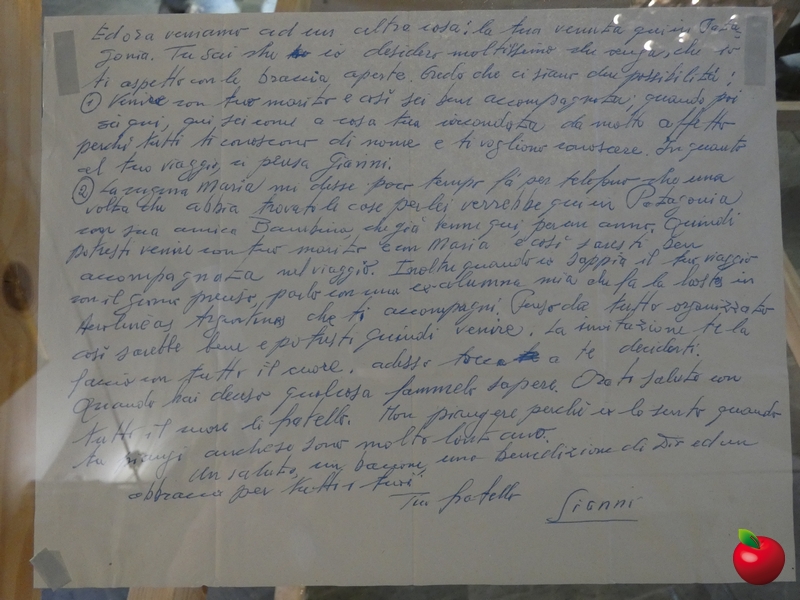 Ed ora veniamo ad un altra cosa: la tua venuta qui in Pata-
gonia. Tu sai che io desidero moltissimo che venga, che io
ti aspetto con le braccia aperte. Credo che ci siano due possibilità:
① Venire con tuo marito e così sei bene accompagnata; quando poi
sei qui, qui sei come a casa tua circondata da molto affetto
perché tutti ti conoscono di nome e ti vogliono conoscere. In quanto
al tuo viaggio, ci pensa Gianni.
② La cugina Maria mi disse poco tempo fà per telefono che una
volta che abbia trovato le cose per lei verrebbe qui in Patagonia
con sua amica Bambina, che già venne qui, per un anno. Quindi
potresti venire con tuo marito e con Maria e così saresti ben
accompagnata nel viaggio. Inoltre quando io sappia il tuo viaggio
con il giorno preciso, parlo con una ex-alumna mia che fa la hostes in
Aerolineas Argentinas che ti accompagni. Penso da tutto organizzato
così sarebbe bene e potresti quindi venire. La invitazione te la
faccio con tutto il cuore. adesso tocca a te deciderti.
Quando hai deciso qualcosa fammelo sapere. Ora ti saluto con
tutto il cuore di fratello. Non piangere perché io lo sento quando
tu piangi anche se sono molto lontano.
Un saluto, un bacione, una benedizione di Dio ed un
abbraccio per tutti i tuoi.
Tuo fratello
Gianni